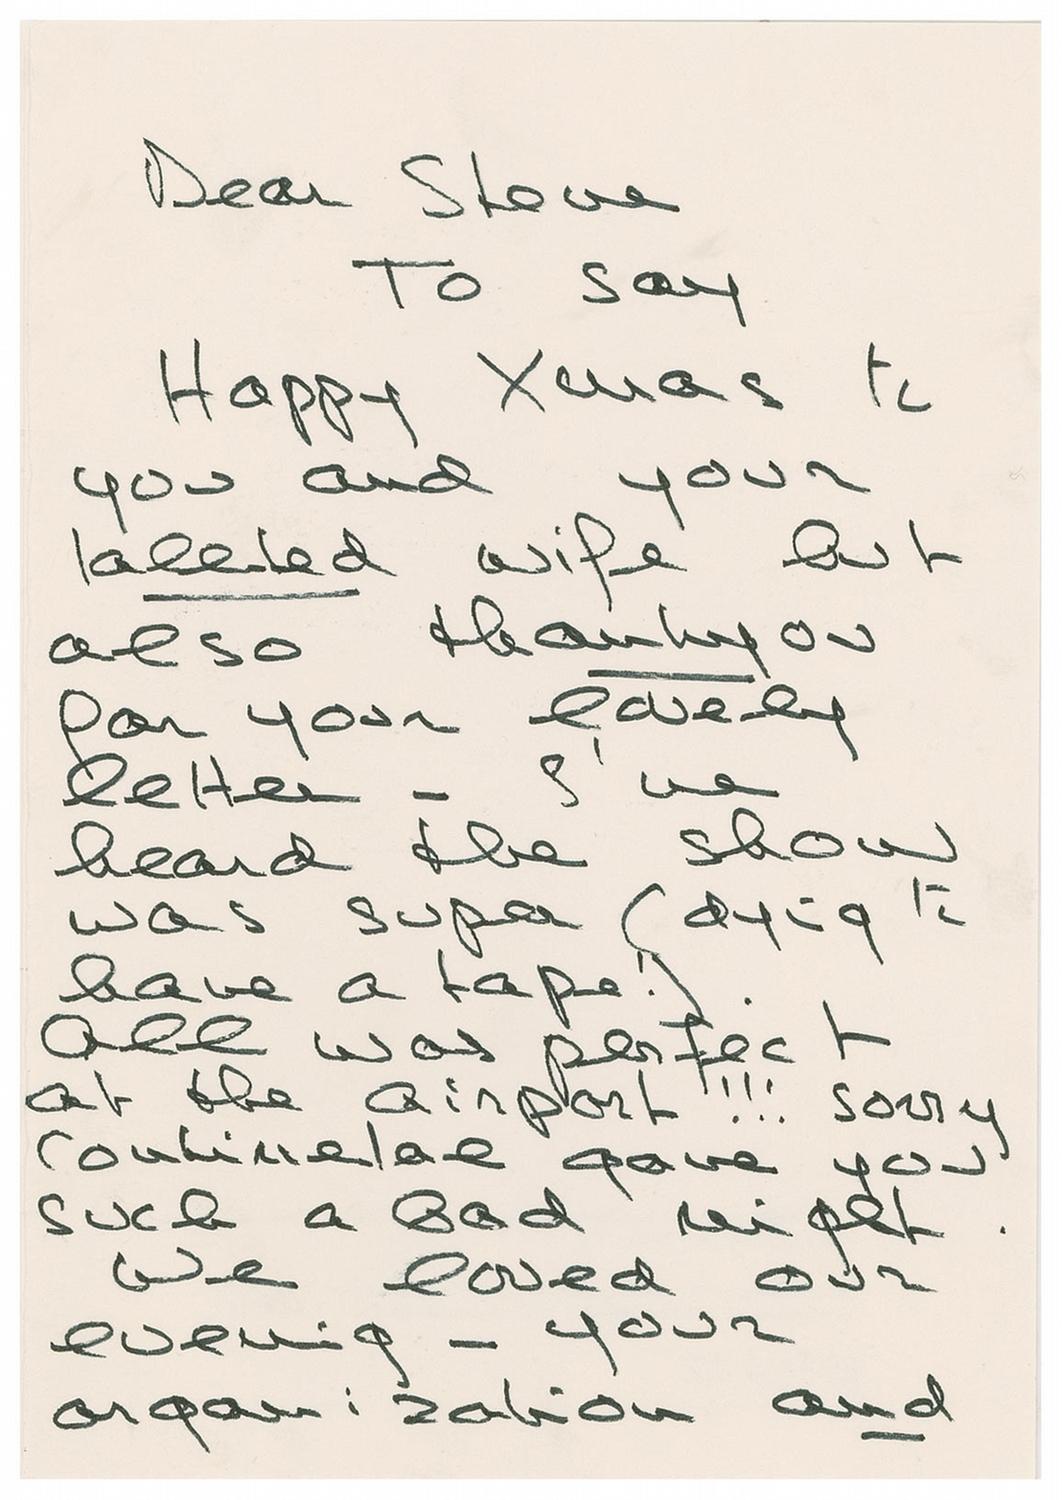 Dear Steve
To say
Happy Xmas to
you and your
talented wife but
also thankyou
for your lovely
letter - I've
heard the show
was super (dying to
have a tape!).
All was perfect
at the airport!!! sorry
Continental gave you
such a bad night.
We loved our
evening - your
organization and